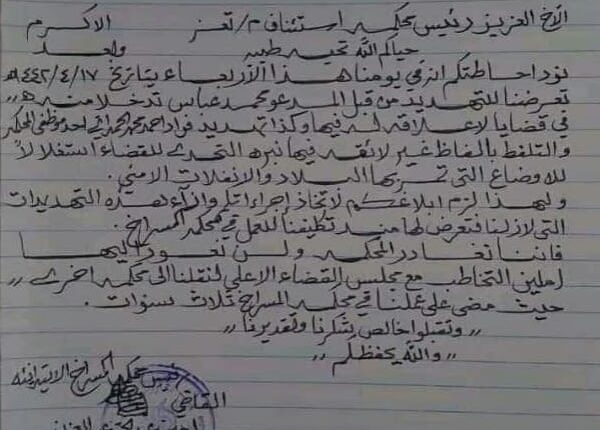 الأخ العزيز رئيس محكمة استئناف م/ تعز الاكرم
حياكم الله تحيه طيبه وبعد
نود احاطتكم انه في يومنا هذا الأربعاء بتاريخ ١٤٤٢/٤/١٧هـ
تعرضنا للتهديد من قبل المدعو محمد عباس تدخلا منه
في قضايا لا علاقة له فيها وكذا تهديد فؤاد احمد محمد احد موظفي المحكمه
والتلفظ بالفاظ غير لائقه فيها نبره التحدي للقضاء استغلالاً
للاوضاع التي تمر بها البلاد والانفلات الامني.
ولهذا لزم ابلاغكم لاتخاذ إجراءاتكم إزاء هذه التهديدات
التي لازلنا نتعرض لها منذ تكليفنا للعمل في محكمه المسراخ.
فاننا نغادر المحكمه ولن نعود اليها
املين التخاطب مع مجلس القضاء الاعلى لنقلنا الى محكمه اخرى
حيث مضى على عملنا في محكمه المسراخ ثلاث سنوات.
وتقبلوا خالص شكرنا وتقديرنا
والله يحفظكم
رئيس محكمة المسراخ الابتدائيه
القاضي